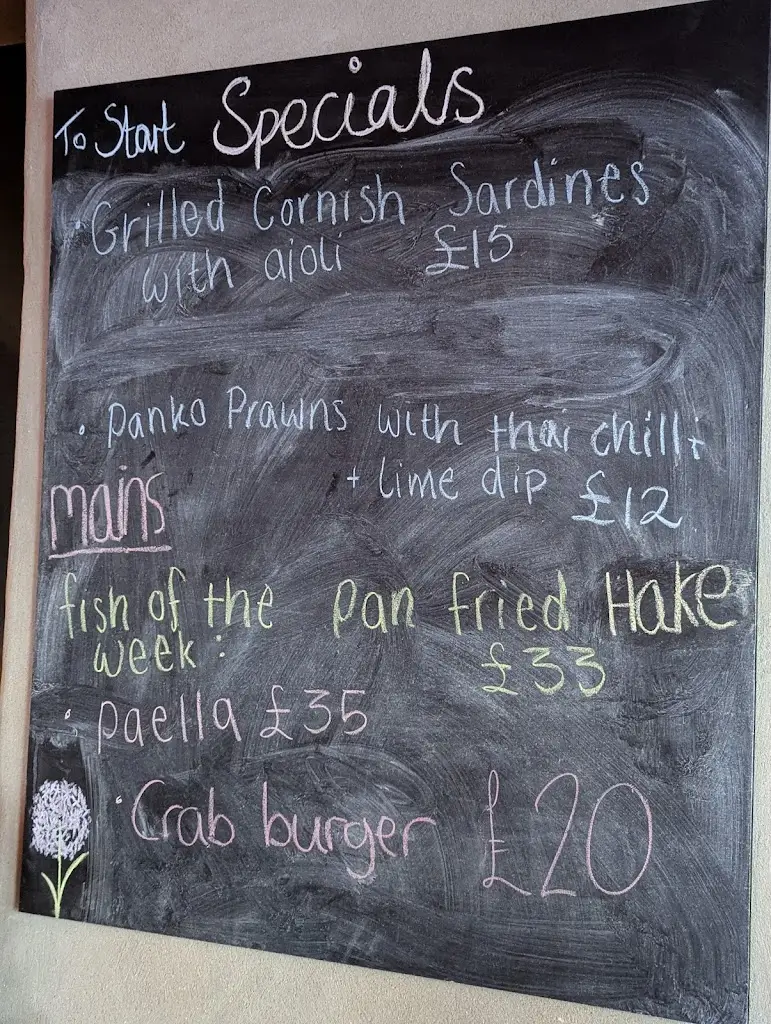 To Start Specials
· Grilled Cornish Sardines
with aioli £15
· Panko Prawns with thai chilli
+ lime dip £12
mains
fish of the Pan fried Hake
week: £33
· paella £35
· Crab burger £20